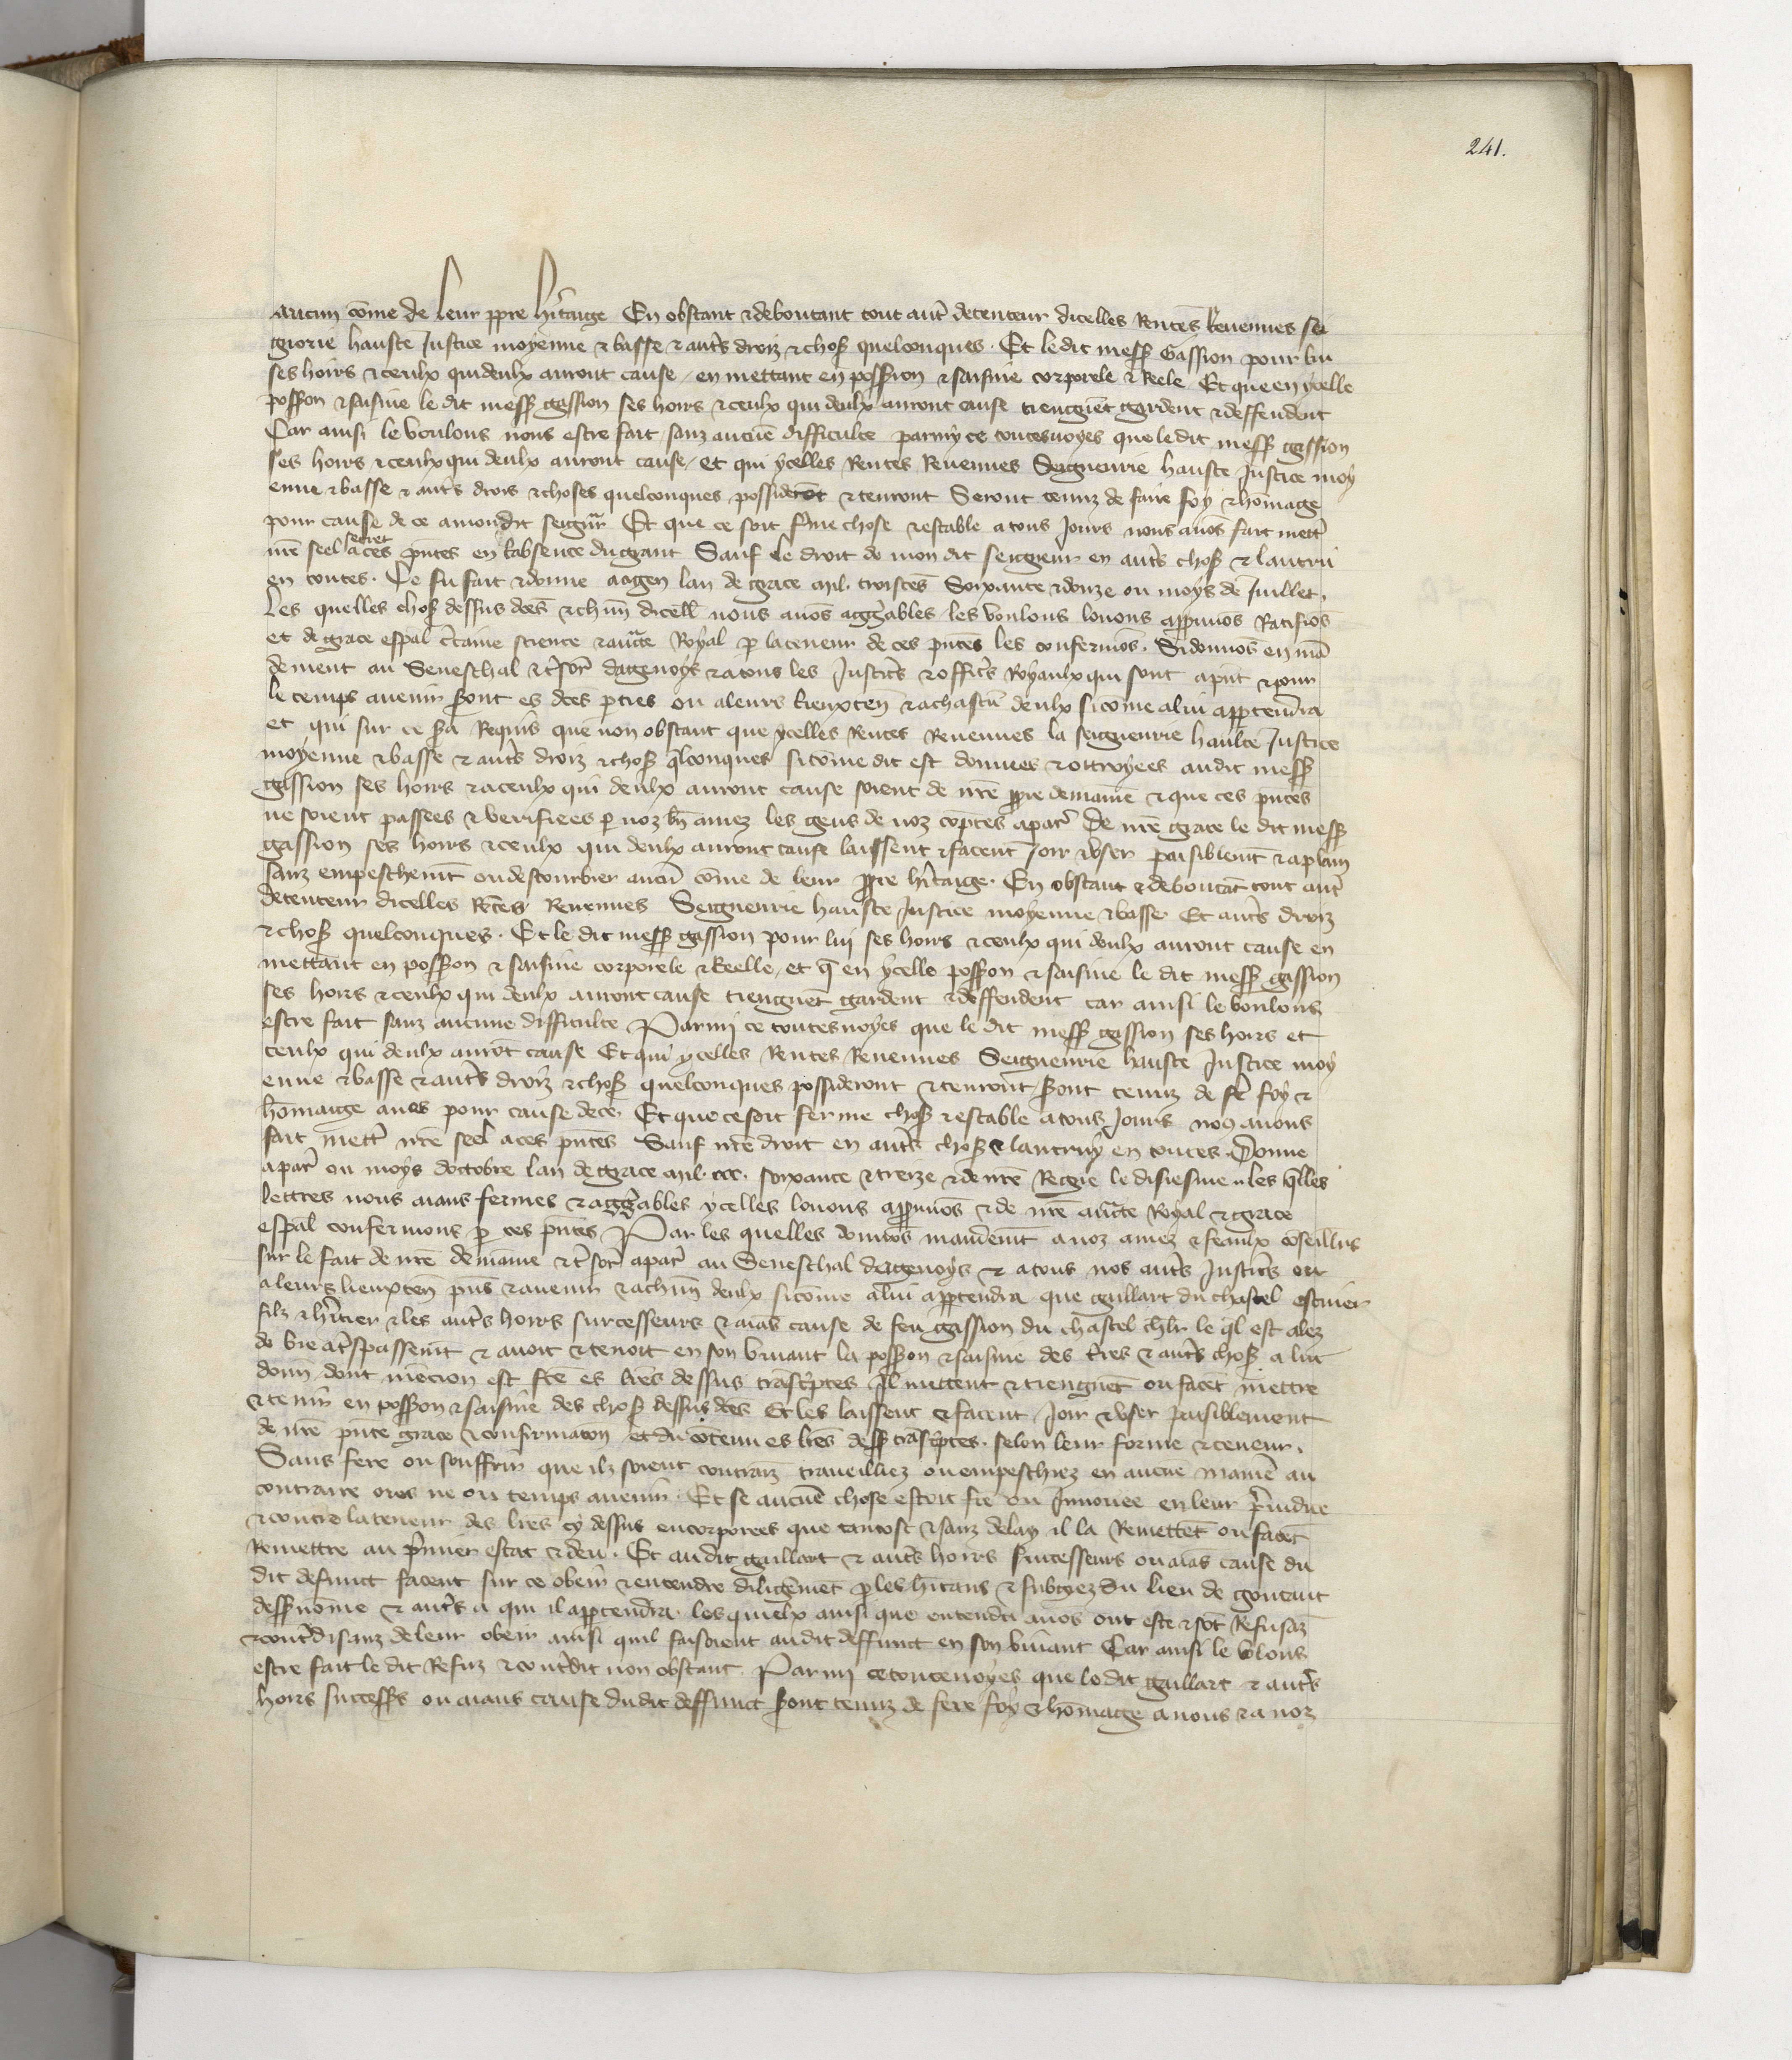 241.
aucun cōme de leur ppre hītaige En obstant & deboutant tout autre detenteur dicelles Rentes Reuenues sei
gniorie haulte Justice moyenne & basse & autres droiz & choses quelconques . Et ledit mess Gassion pour lui
ses hoirs & ceulx qui deulx auront cause / en mettant en possession & saisine corporele & Reele Et que en ycelle
possion & saisine le dit mess gassion ses hoirs & ceulx qui deulx auront cause tiengnēt gardent & deffendent
Car ainsi le voulons nous estre fait / sanz aucūe difficulte parmy ce toutesuoyes que le dit mess gassion
ses hoirs & ceulx qui deulx auront cause / et qui ycelles Rentes Reuenues Seignenrie haulte Justice moy
enne & basse & autres drois & choses quelconques possiderōt & tenront Seront tenuz de faire foy & homage
pour cause de ce a mondit seignr Et que ce soit fme chose & estable a tous Jours nous auōs fait mettre
nre seel secret a ces pntes en labsence du grant Sauf le droit de mon dit seigneur en autres choses & lautrui
en toutes . Ce fu fait & donne a agen lan de grace mil. troiscēs Soixante & douze ou moys de Juillet .
Les quelles choses dessus dces & chūn dicelles nous auōs aggreables / les voulons louons appruuōs Ratifiōs
et de grace espāl ctaine science & aucte Royal p la teneur de ces pntes les confermōs . Si donnōs en mā
dement au Seneschal & tsorr dagenoys & a tous les Justices & offices Royaulx qui sont apnt & pour
le temps auenir sont es dces pties ou a leurs lieuxtēn & a chascū deulx sicōme a lui apptendra
et qui sur ce sa Requis que non obstant que ycelles Rentes Reuenues la seigneurie haulte Justice
moyenne & basse & autres droiz & choses qlconques sicōme dit est donnes & ottroyees audit mess
gassion ses hoirs & a ceulx qui deulx auront cause soient de nre ppre demaine & que ces pntes
ne soient passees & verifiees p noz bn amez les gens de noz cōptes a par De nre grace le dit mess
gassion ses hoirs & ceulx qui deulx auront cause laissent & facent Joir & vser paisiblemt & a plain
sanz empeschemt ou destourbier aucū cōme de leur ppre hītaige . En obstant & deboutāt tout autre
detenteur dicelles Rētes Reuenues Seigneurie haulte Justice moyenne & basse Et autres droiz
& choses quelconques . Et le dit mess gassion pour lui ses hoirs & ceulx qui deulx auront cause en
mettant en possion & saisine corporele & Reelle / et q en ycelle possion & saisine le dit mess gassion
ses hoirs & ceulx qui deulx auront cause tiengnēt gardent & deffendent car ainsi le voulons
estre fait sanz aucune difficulte Parmi ce toutesuoyes que le dit mess gassion ses hoirs et
ceulx qui deulx aurōt cause Et qui ycelles Rentes Reuenues Seigneurie haulte Justice moy
enne & basse & autres droiz & choses quelconques possideront & tenront sont tenuz de fe foy &
hōmaige a nos pour cause de ce . Et que ce soit ferme chose & estable a tous Jours nos auons
fait mettre nre seel a ces pntes Sauf nre droit en autres choses & lautruy en toutes . Donne
a par ou moys doctobre lan de grace mil. ccc. soixante & treize & de nre Regne le disiesme . Les qlles
lettres nous aians fermes & aggreables ycelles louons appruuōs & de nre aucte Royal & grace
espāl confermons p ces pntes Par les quelles donnōs mandemt a noz amez & feaulx cōseillrs
sur le fait de nre demaine & tsorr a par au Seneschal dagenoys & a tous nos autres Justices ou
a leurs lieuxtēn pns & auenir & a chūn deulx sicōme a lui apptendra que gaillart du chastel escuier
filz & hītier & les autres hoirs successeurs & aiās cause de feu gassion du chastel chlr le ql est alez
de vie a tspassemt & auoit & tenoit en son viuant la possion & saisine des tres & autres choses a lui
donn . dont mēcion est fte es lres dessus trāscptes Jl mettent & tiengnēt ou facēt mettre
& tenir en possion & saisine des choses dessus dces Et les laissent & facent Joir & vser paisiblement
de nre pnte grace & confirmaton et du cōtenu es lres dess trāscptes . selon leur forme & teneur .
Sans fere ou souffrir que ilz soient contraiz traueilliez ou empeschiez en aucūe maniē au
contraire ores ne ou temps auenir . Et se aucūe chose estoit fte ou Jnnouee en leur preiudice
& contre la teneur des lres cy dessus encorporees que tantost & sanz delay il la Remettēt ou facēt
Remettre au pmier estat & deu . Et audit gaillart & autres hoirs successeurs ou aiās cause du
dit defunct facent sur ce obeir & entendre diligēmēt p les hītans & subgez du lieu de gontaut
dess nōme & autres a qui il apptendra . les quielx ainsi que entendu auōs ont este & sōt Refusāz
& contdisanz de leur obeir ainsi quil faisoient audit deffunct en son viuant Car ainsi le volons
estre fait le dit Refuz & contdit non obstant Parmi ce toutesuoyes que le dit gaillart & autres
hoirs successrs ou aians cause dudit deffunct sont tenuz de fere foy & hōmage a nous & a noz